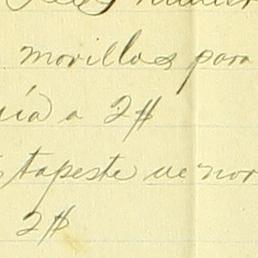 morillos para
ía a 2$
tapeste de nor
2$